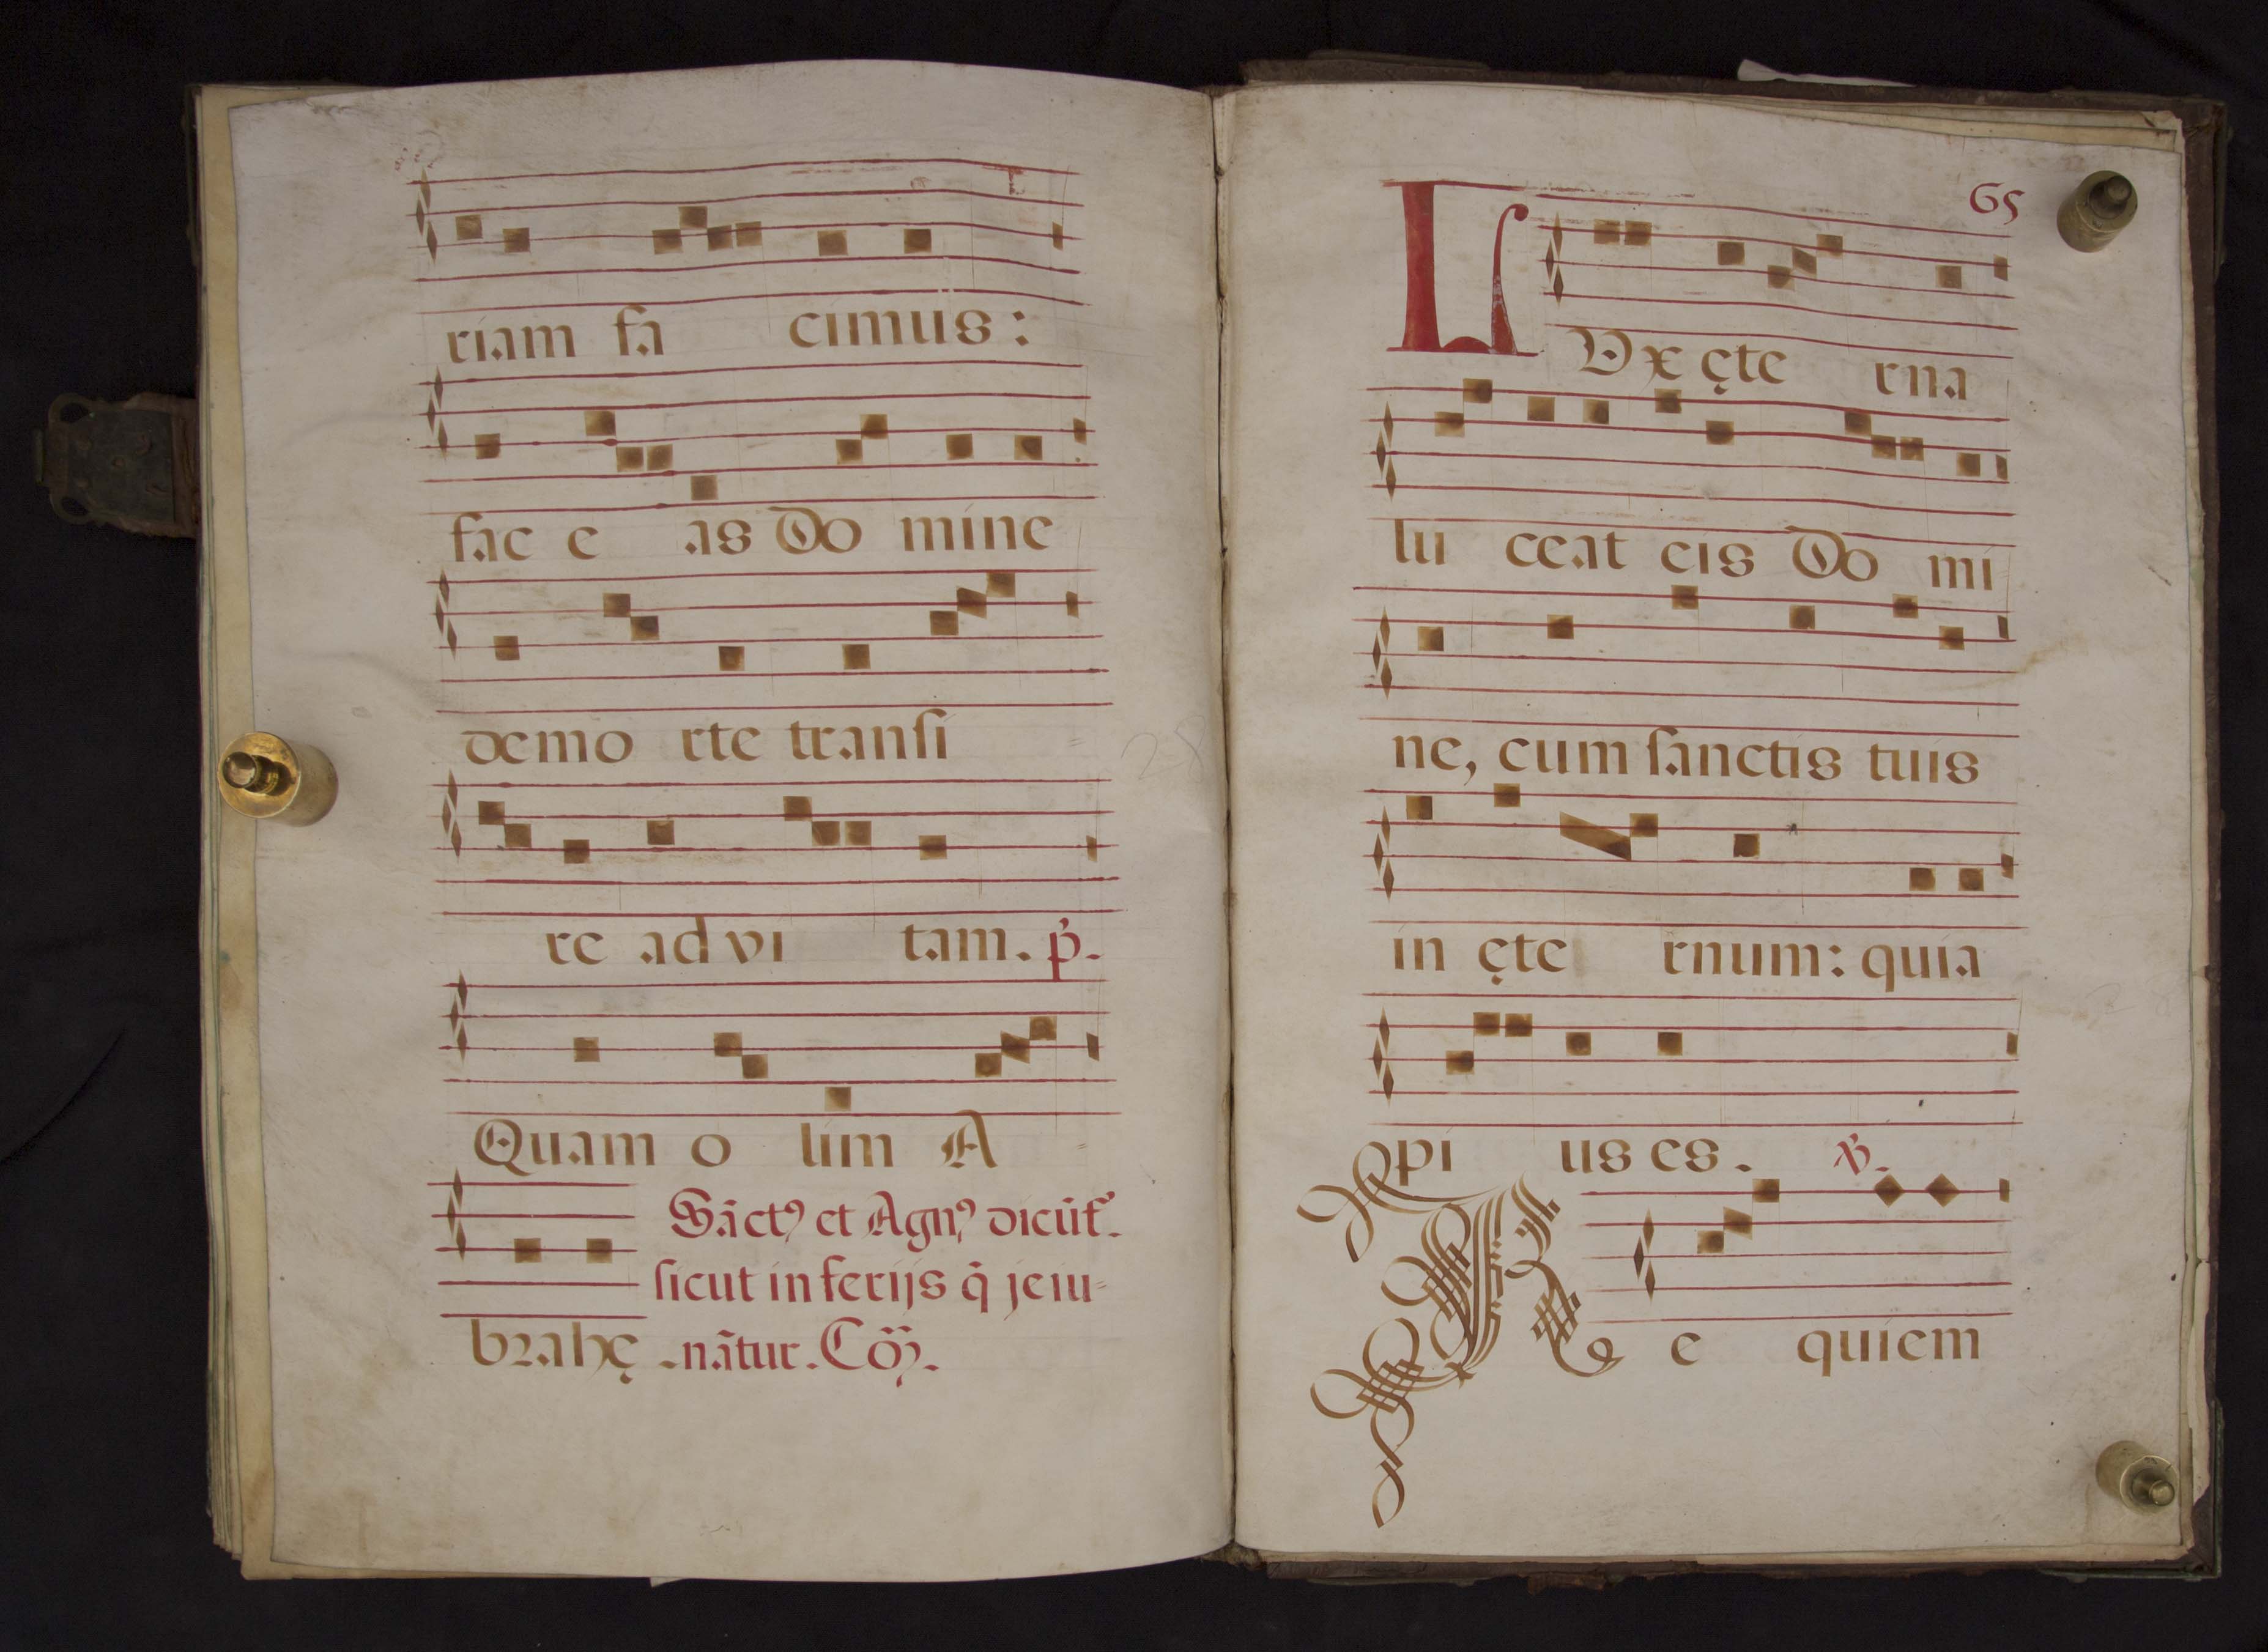 riam fa cimus:
fac e as Do mine
de mo rte transi
re ad vi tam. p̃.
Quam o lim A
Sãctꝰ et Agnꝰ dicũt᷑.
sicut in ferijs q̃ jeiu-
brahę .nãtur. Cõ̃.
65
LVx ęte rna
lu ceat eis Do mi
ne, cum sanctis tuis
in ęte rnum: quia
pi us es. ℣.
Re quiem